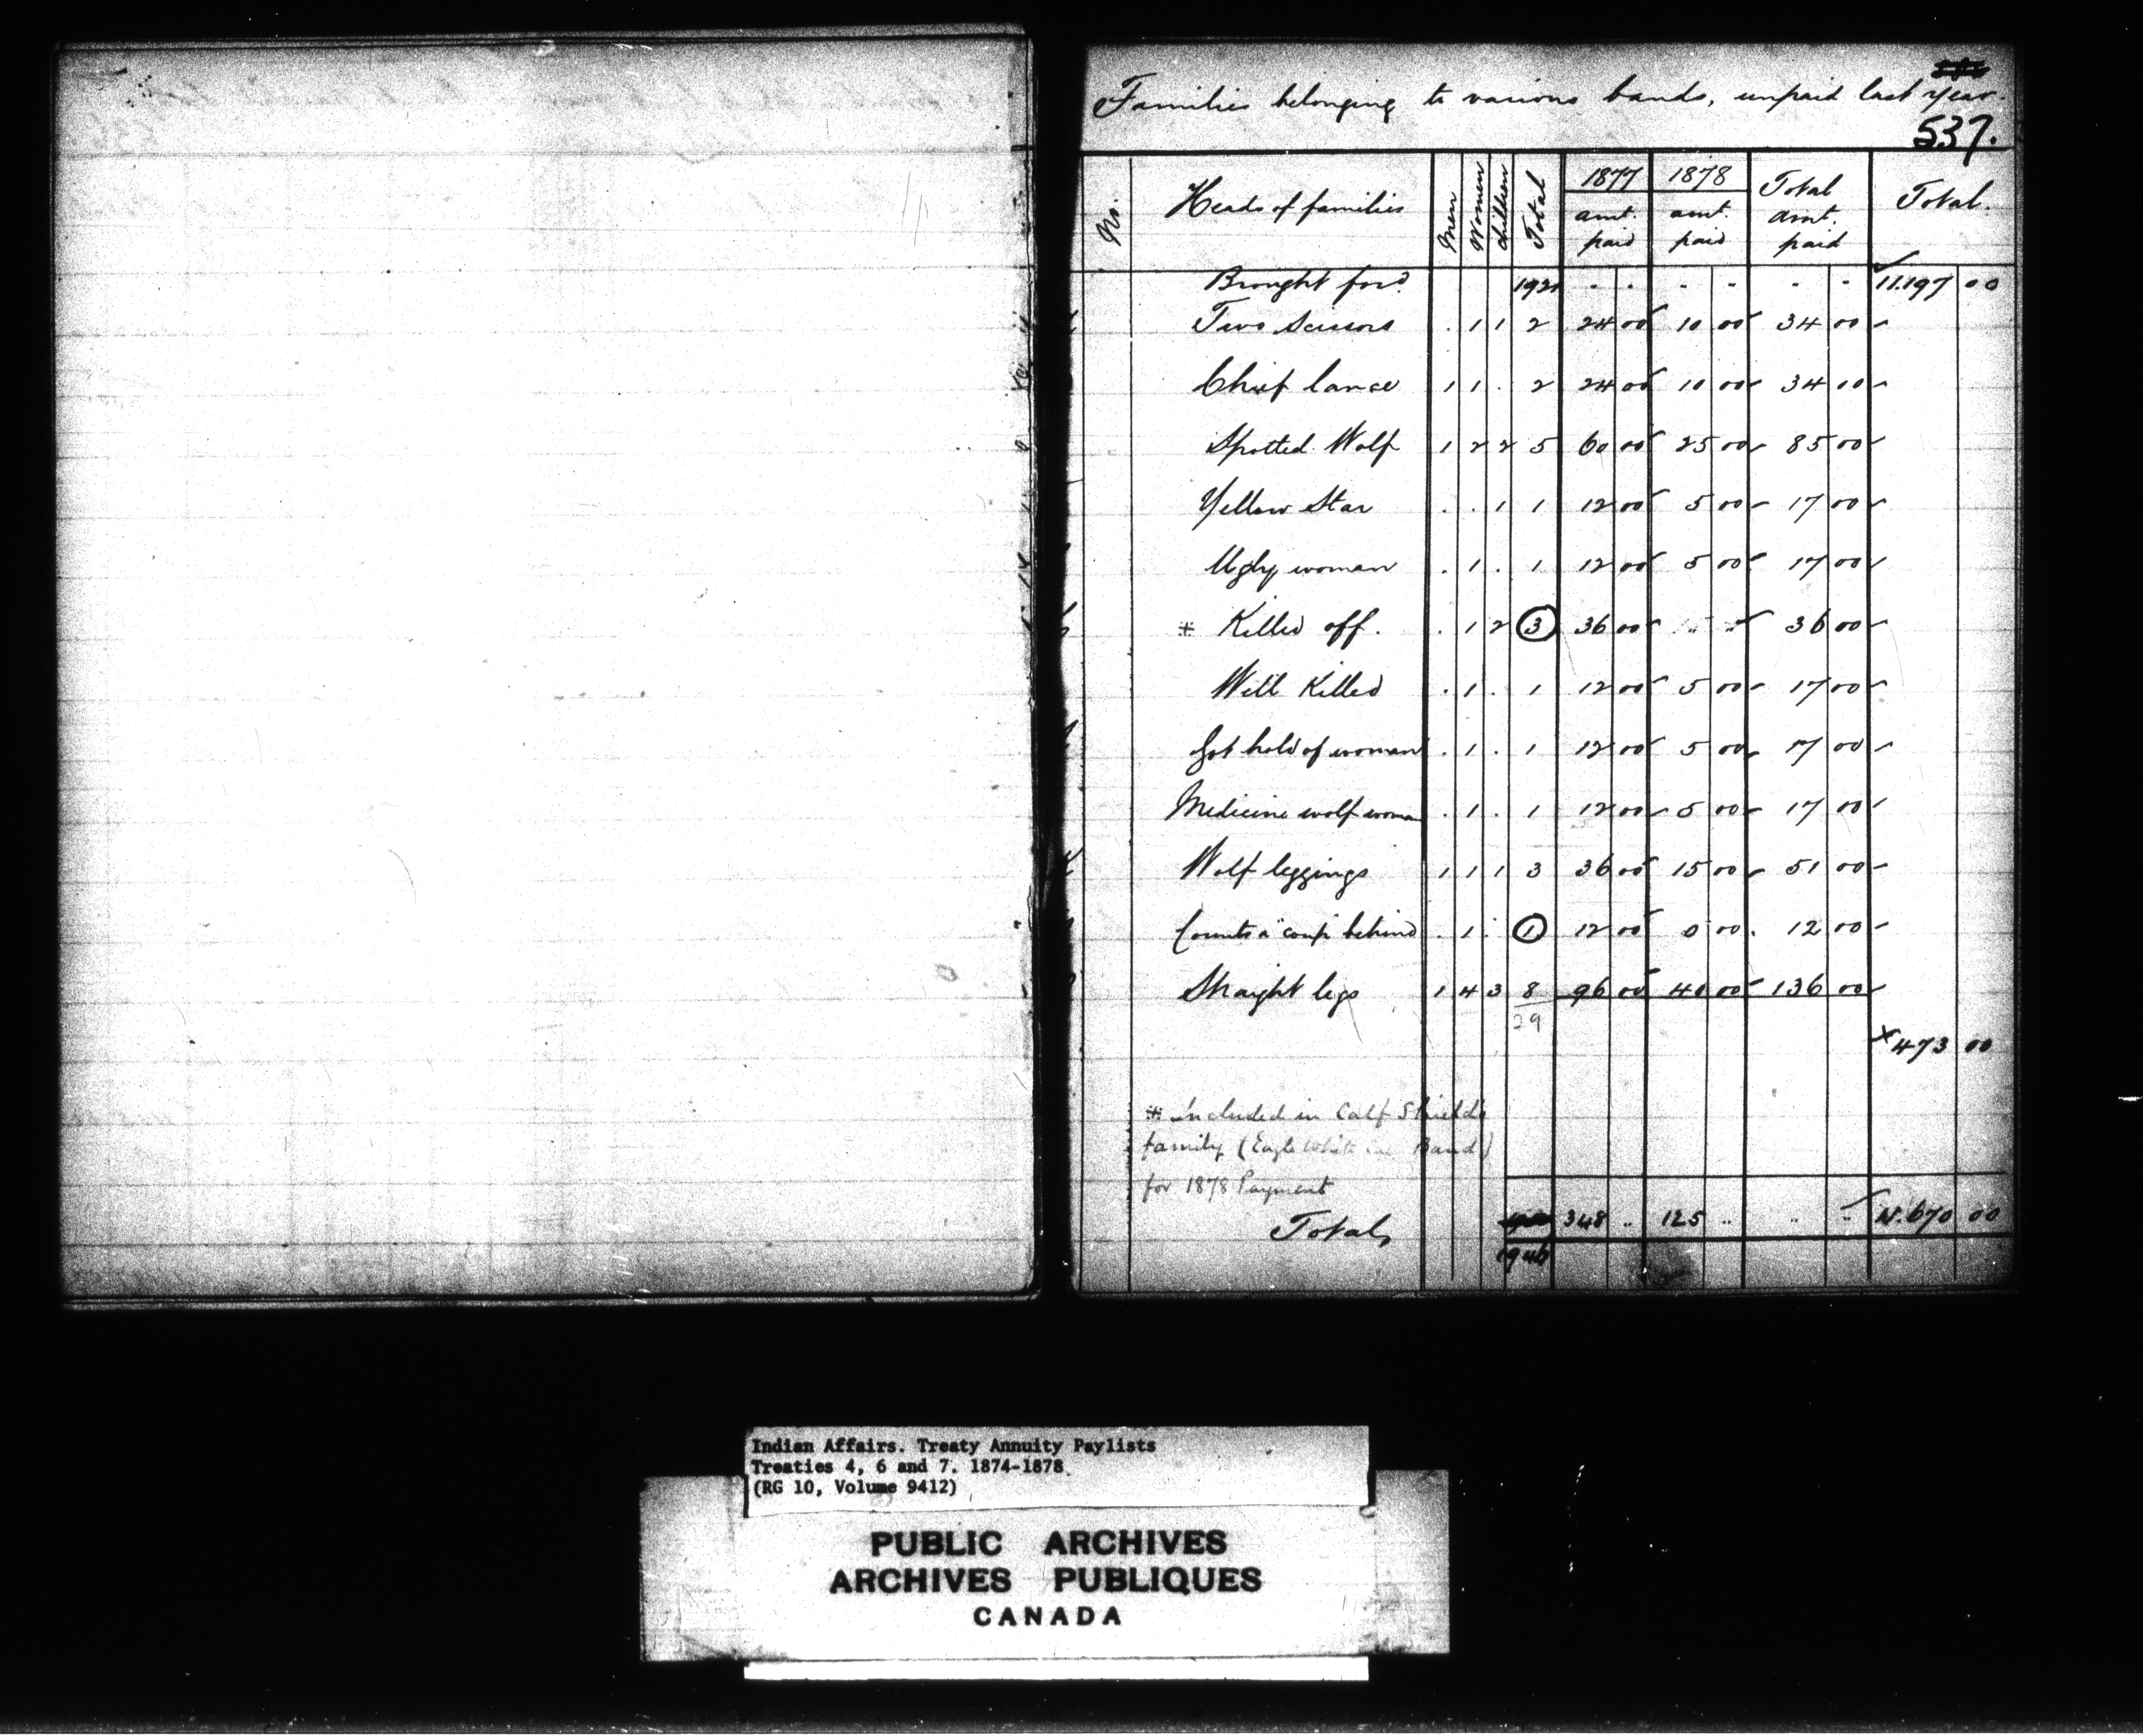 Families belonging to various bands, unpaid last year.
537.
No. Heads of families Men Women children Total 1877 amt. paid 1878 amt. paid Total amt. paid Total.
Brought ford. 1921 - - - - - - 11.197 00
Two Scissors . 1 1 2 24 00 10 00 34 00
Chief lance 1 1 . 2 24 00 10 00 34 00
Spotted Wolf 1 2 2 5 60 00 25 00 85 00
Yellow Star . . 1 1 12 00 5 00 17 00
Ugly woman . 1 . 1 12 00 5 00 17 00
* Killed off. . 1 2 3 36 00 .. .. 36 00
Will Killed . 1 . 1 12 00 5 00 17 00
Got hold of woman . 1 . 1 12 00 5 00 17 00
Medicine wolf woman . 1 . 1 12 00 5 00 17 00
Wolf leggings 1 1 1 3 36 00 15 00 51 00
Counts a "coup" behind . 1 . 1 12 00 0 00 12 00
Straight legs 1 4 3 8 96 00 40 00 136 00
29
473 00
* Included in Calf Shields
family (Eagle White Band)
for 1878 Payment
Total, 348 .. 125 .. .. .. 11.670 00
Indian Affairs. Treaty Annuity Paylists
Treaties 4, 6 and 7. 1874-1878
(RG 10, Volume 9412)
PUBLIC ARCHIVES
ARCHIVES PUBLIQUES
CANADA